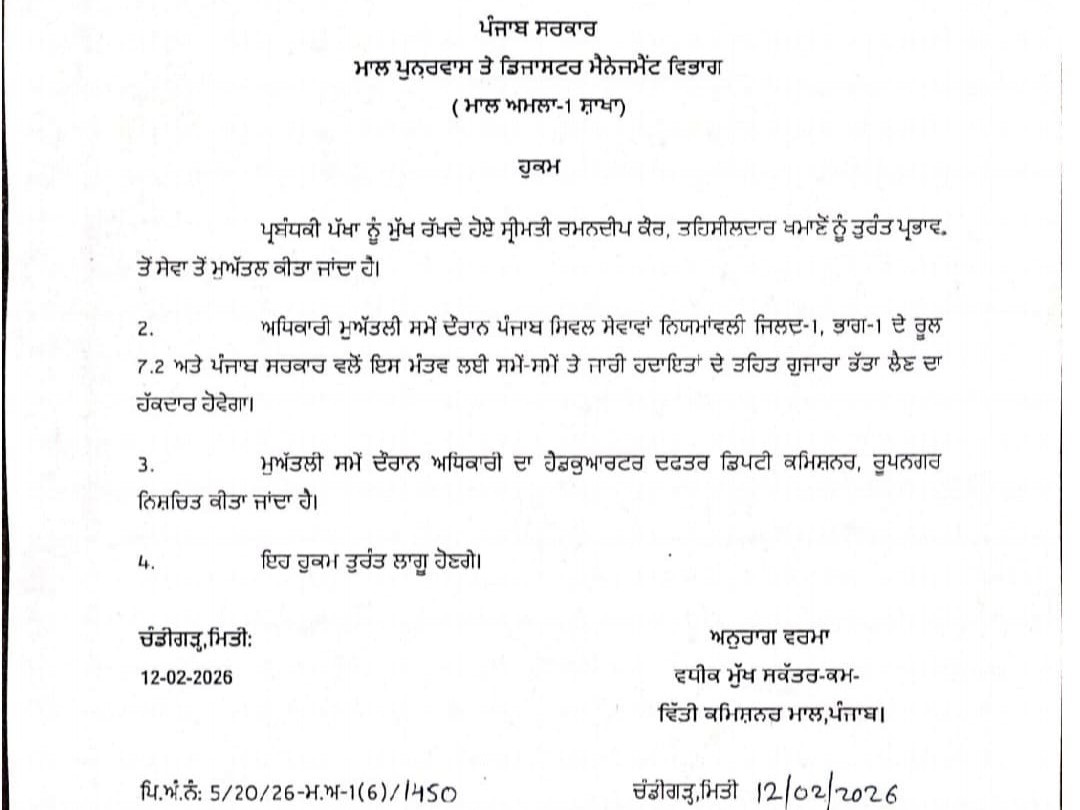 ਪੰਜਾਬ ਸਰਕਾਰ
ਮਾਲ ਪੁਨਰਵਾਸ ਤੇ ਡਿਜਾਸਟਰ ਮੈਨੇਜਮੈਂਟ ਵਿਭਾਗ
( ਮਾਲ ਅਮਲਾ-1 ਸ਼ਾਖਾ)
ਹੁਕਮ
ਪ੍ਰਬੰਧਕੀ ਪੱਖਾ ਨੂੰ ਮੁੱਖ ਰੱਖਦੇ ਹੋਏ ਸ੍ਰੀਮਤੀ ਰਮਨਦੀਪ ਕੌਰ, ਤਹਿਸੀਲਦਾਰ ਖਮਾਣੋਂ ਨੂੰ ਤੁਰੰਤ ਪ੍ਰਭਾਵ
ਤੋਂ ਸੇਵਾ ਤੋਂ ਮੁਅੱਤਲ ਕੀਤਾ ਜਾਂਦਾ ਹੈ।
2. ਅਧਿਕਾਰੀ ਮੁਅੱਤਲੀ ਸਮੇਂ ਦੌਰਾਨ ਪੰਜਾਬ ਸਿਵਲ ਸੇਵਾਵਾਂ ਨਿਯਮਾਂਵਲੀ ਜਿਲਦ-1, ਭਾਗ-1 ਦੇ ਰੂਲ
7.2 ਅਤੇ ਪੰਜਾਬ ਸਰਕਾਰ ਵਲੋਂ ਇਸ ਮੰਤਵ ਲਈ ਸਮੇਂ-ਸਮੇਂ ਤੇ ਜਾਰੀ ਹਦਾਇਤਾਂ ਦੇ ਤਹਿਤ ਗੁਜਾਰਾ ਭੱਤਾ ਲੈਣ ਦਾ
ਹੱਕਦਾਰ ਹੋਵੇਗਾ।
3. ਮੁਅੱਤਲੀ ਸਮੇਂ ਦੌਰਾਨ ਅਧਿਕਾਰੀ ਦਾ ਹੈਡਕੁਆਰਟਰ ਦਫਤਰ ਡਿਪਟੀ ਕਮਿਸ਼ਨਰ, ਰੂਪਨਗਰ
ਨਿਸ਼ਚਿਤ ਕੀਤਾ ਜਾਂਦਾ ਹੈ।
4. ਇਹ ਹੁਕਮ ਤੁਰੰਤ ਲਾਗੂ ਹੋਣਗੇ।
ਚੰਡੀਗੜ੍ਹ,ਮਿਤੀ:
12-02-2026
ਅਨੁਰਾਗ ਵਰਮਾ
ਵਧੀਕ ਮੁੱਖ ਸਕੱਤਰ-ਕਮ-
ਵਿੱਤੀ ਕਮਿਸ਼ਨਰ ਮਾਲ,ਪੰਜਾਬ।
ਪਿ.ਅੰ.ਨੰ: 5/20/26-ਮ.ਅ-1(6)/1450
ਚੰਡੀਗੜ੍ਹ,ਮਿਤੀ 12/02/2026